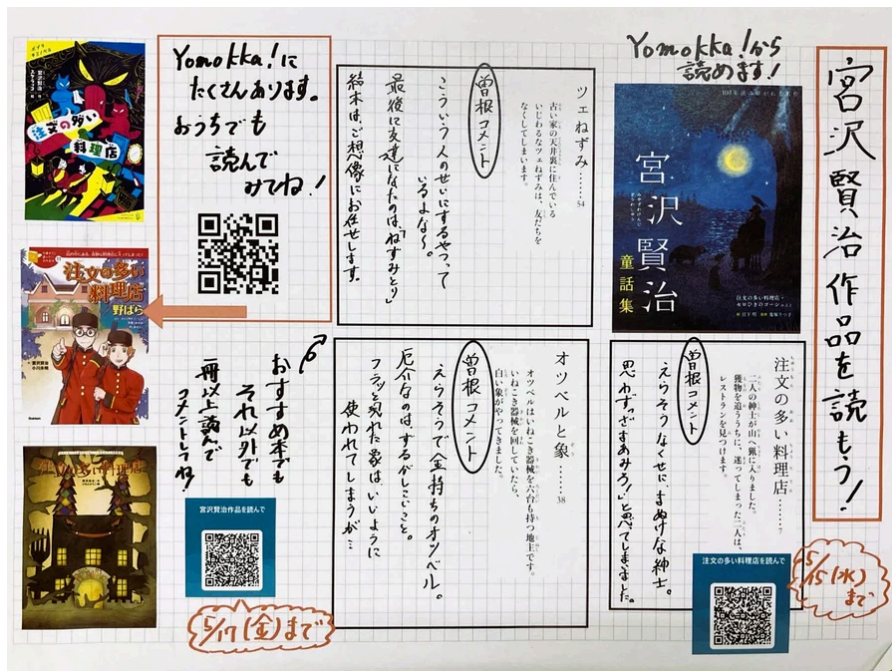 宮沢賢治作品を読もう!
Yomokka!から
読めます!
宮沢賢治
童話集
注文の多い料理店・
セロひきのゴーシュなど
注文の多い料理店……7
二人の紳士が山へ猟に入りました。
獲物を追ううちに、迷ってしまった二人は、
レストランを見つけます。
曽根コメント
えらそうなくせに、まぬけな紳士。
思わず「ざまあみろ!」と思ってしまいました。
注文の多い料理店を読んで
5/15(水)
まで
ツェねずみ……54
古い家の天井裏に住んでいる
いじわるなツェねずみは、友だちを
なくしてしまいます。
曽根コメント
こういう人のせいにするやつって
いるよな〜。
最後に友達になったのは、「ねずみとり」
結末はご想像にお任せします。
オツベルと象……38
オツベルはいねこき器械を六台も持つ地主です。
いねこき器械を回していたら、
白い象がやってきました。
曽根コメント
えらそうで金持ちのオツベル。
厄介なのは、ずるがしこいこと。
フラッと現れた象は、いいように
使われてしまうが…
Yomokka!に
たくさんあります。
おうちでも
読んで
みてね!
おすすめ本でも
それ以外でも
一冊以上読んで
コメントしてね!
宮沢賢治作品を読んで
5/17(金)まで
注文の多い
料理店
注文の多い
料理店
野ばら
注文の多い料理店